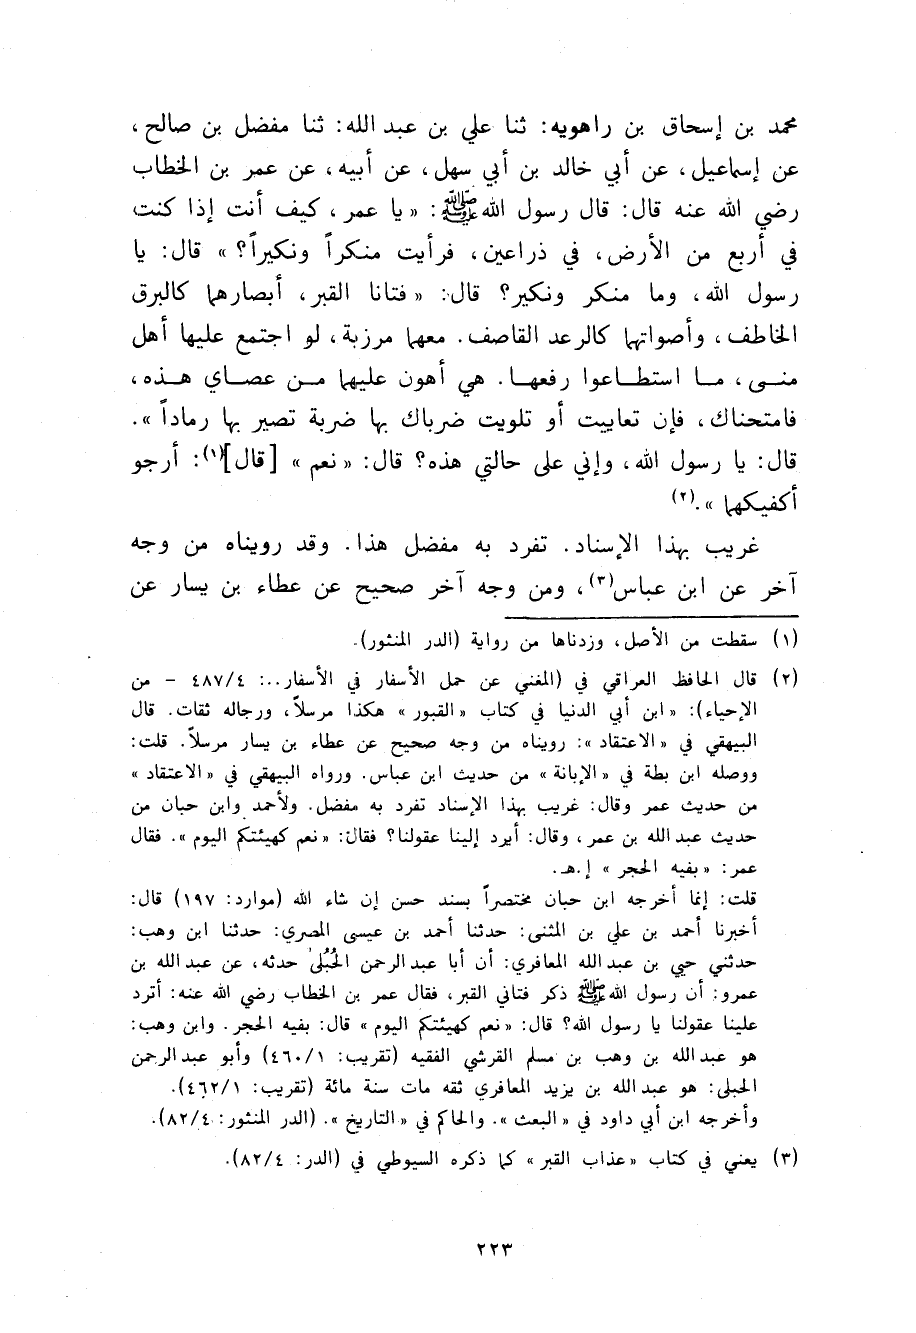 محمد بن إسحاق بن راهويه: ثنا علي بن عبد الله: ثنا مفضل بن صالح،
عن إسماعيل، عن أبي خالد بن أبي سهل، عن أبيه، عن عمر بن الخطاب
رضي الله عنه قال: قال رسول الله ﷺ: « يا عمر، كيف أنت إذا كنت
في أربع من الأرض، في ذراعين، فرأيت منكراً ونكيراً؟ » قال: يا
رسول الله، وما منكر ونكير؟ قال: « فتانا القبر، أبصارهما كالبرق
الخاطف، وأصواتهما كالرعد القاصف. معهما مرزبة، لو اجتمع عليها أهل
منـى، مـا استطـاعوا رفعهـا. هي أهون عليهما مـن عصـاي هـذه،
فامتحناك، فإن تعاييت أو تلويت ضرباك بها ضربة تصير بها رماداً ».
قال: يا رسول الله، وإني على حالتي هذه؟ قال: « نعم » [قال](١): أرجو
أكفيكهما ».(٢)
غريب بهذا الإسناد. تفرد به مفضل هذا. وقد رويناه من وجه
آخر عن ابن عباس(٣)، ومن وجه آخر صحيح عن عطاء بن يسار عن
(١) سقطت من الأصل، وزدناها من رواية (الدر المنثور).
(٢) قال الحافظ العراقي في (المغني عن حمل الأسفار في الأسفار..: ٤٨٧/٤ - من
الإحياء): « ابن أبي الدنيا في كتاب « القبور » هكذا مرسلاً، ورجاله ثقات. قال
البيهقي في « الاعتقاد »: رويناه من وجه صحيح عن عطاء بن يسار مرسلاً. قلت:
ووصله ابن بطة في « الإبانة » من حديث ابن عباس. ورواه البيهقي في « الاعتقاد »
من حديث عمر وقال: غريب بهذا الإسناد تفرد به مفضل. ولأحمد وابن حبان من
حديث عبد الله بن عمر، وقال: أيرد إلينا عقولنا؟ فقال: « نعم كهيئتكم اليوم ». فقال
عمر: « بفيه الحجر » إ.هـ.
قلت: إنما أخرجه ابن حبان مختصراً بسند حسن إن شاء الله (موارد: ١٩٧) قال:
أخبرنا أحمد بن علي بن المثنى: حدثنا أحمد بن عيسى المصري: حدثنا ابن وهب:
حدثني حيي بن عبد الله المعافري: أن أبا عبد الرحمن الحُبُلي حدثه، عن عبد الله بن
عمرو: أن رسول الله ﷺ ذكر فتاني القبر، فقال عمر بن الخطاب رضي الله عنه: أترد
علينا عقولنا يا رسول الله؟ قال: « نعم كهيئتكم اليوم » قال: بفيه الحجر. وابن وهب:
هو عبد الله بن وهب بن مسلم القرشي الفقيه (تقريب: ٤٦٠/١) وأبو عبد الرحمن
الحبلي: هو عبد الله بن يزيد المعافري ثقه مات سنة مائة (تقريب: ٤٦٢/١).
وأخرجه ابن أبي داود في « البعث ». والحاكم في « التاريخ ». (الدر المنثور: ٨٢/٤).
(٣) يعني في كتاب « عذاب القبر » كما ذكره السيوطي في (الدر: ٨٢/٤).
٢٢٣